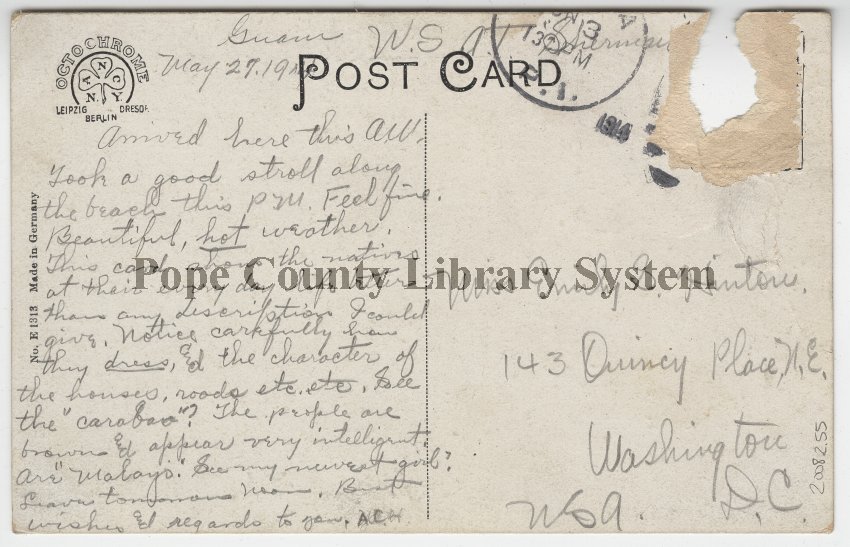 Guam
W.S.A.T. Sherman
May 27. 1914
POST CARD
OCTOCHROME
NANCY
LEIPZIG DRESDF.
BERLIN
13
P.I.
1914
Arrived here this AM.
Took a good stroll along
the beach this P.M. Feel fine.
Beautiful, hot weather.
This card shows the natives
at their every day life better
than any description I could
give. Notice carefully how
they dress, &d the character of
the houses, roads etc. etc. See
the "carabao"? The people are
brown &d appear very intelligent.
Are "Malays". See my newest girl?
Leave tomorrow noon. Best
wishes &d regards to you. ACH
No. E 1313 Made in Germany
Pope County Library System
Miss Emily A. Hinton.
143 Quincy Place, N.E.
Washington
D.C.
USA.
2008255